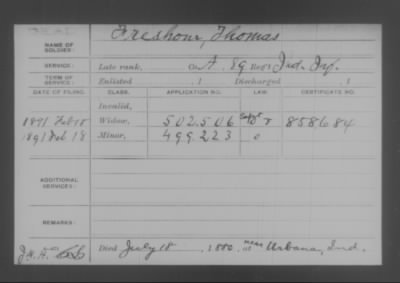 Freshour, Thomas
NAME OF SOLDIER:
SERVICE: Late rank, Co. A. 89 Reg't Ind. Inf.
TERM OF SERVICE: Enlisted , 1 Discharged , 1
DATE OF FILING. CLASS. APPLICATION NO. LAW. CERTIFICATE NO.
Invalid,
1891 Feb 18 Widow, 502.506 858684
1891 Feb 18 Minor, 499.223
ADDITIONAL SERVICES:
REMARKS:
Died July 18, 1880, at near Urbana, Ind.